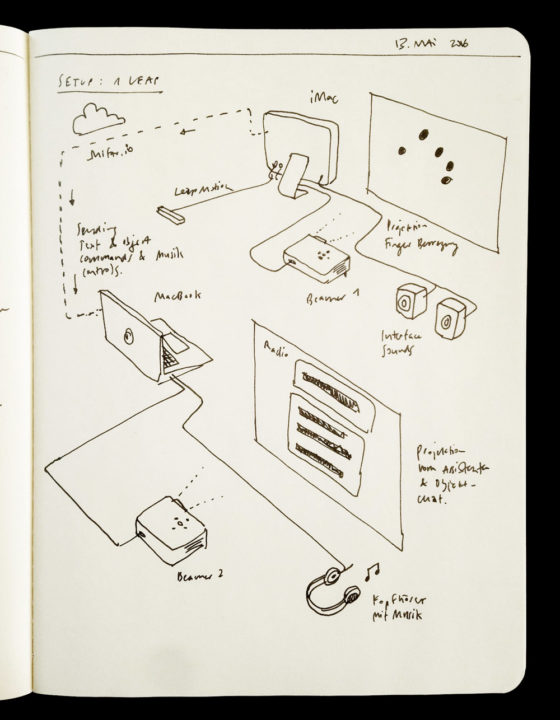 13. MAI 2016
SETUP: 1 LEAP
iMac
Leap Motion
Sending
Text & Object
commands & Musik
controls.
Projektion
Finger Bewegung
Beamer 1
MacBook
Interface
Sounds
Radio
Projektion
vom Assistenten
& Objekt-
chat.
Beamer 2
Kopfhörer
mit Musik